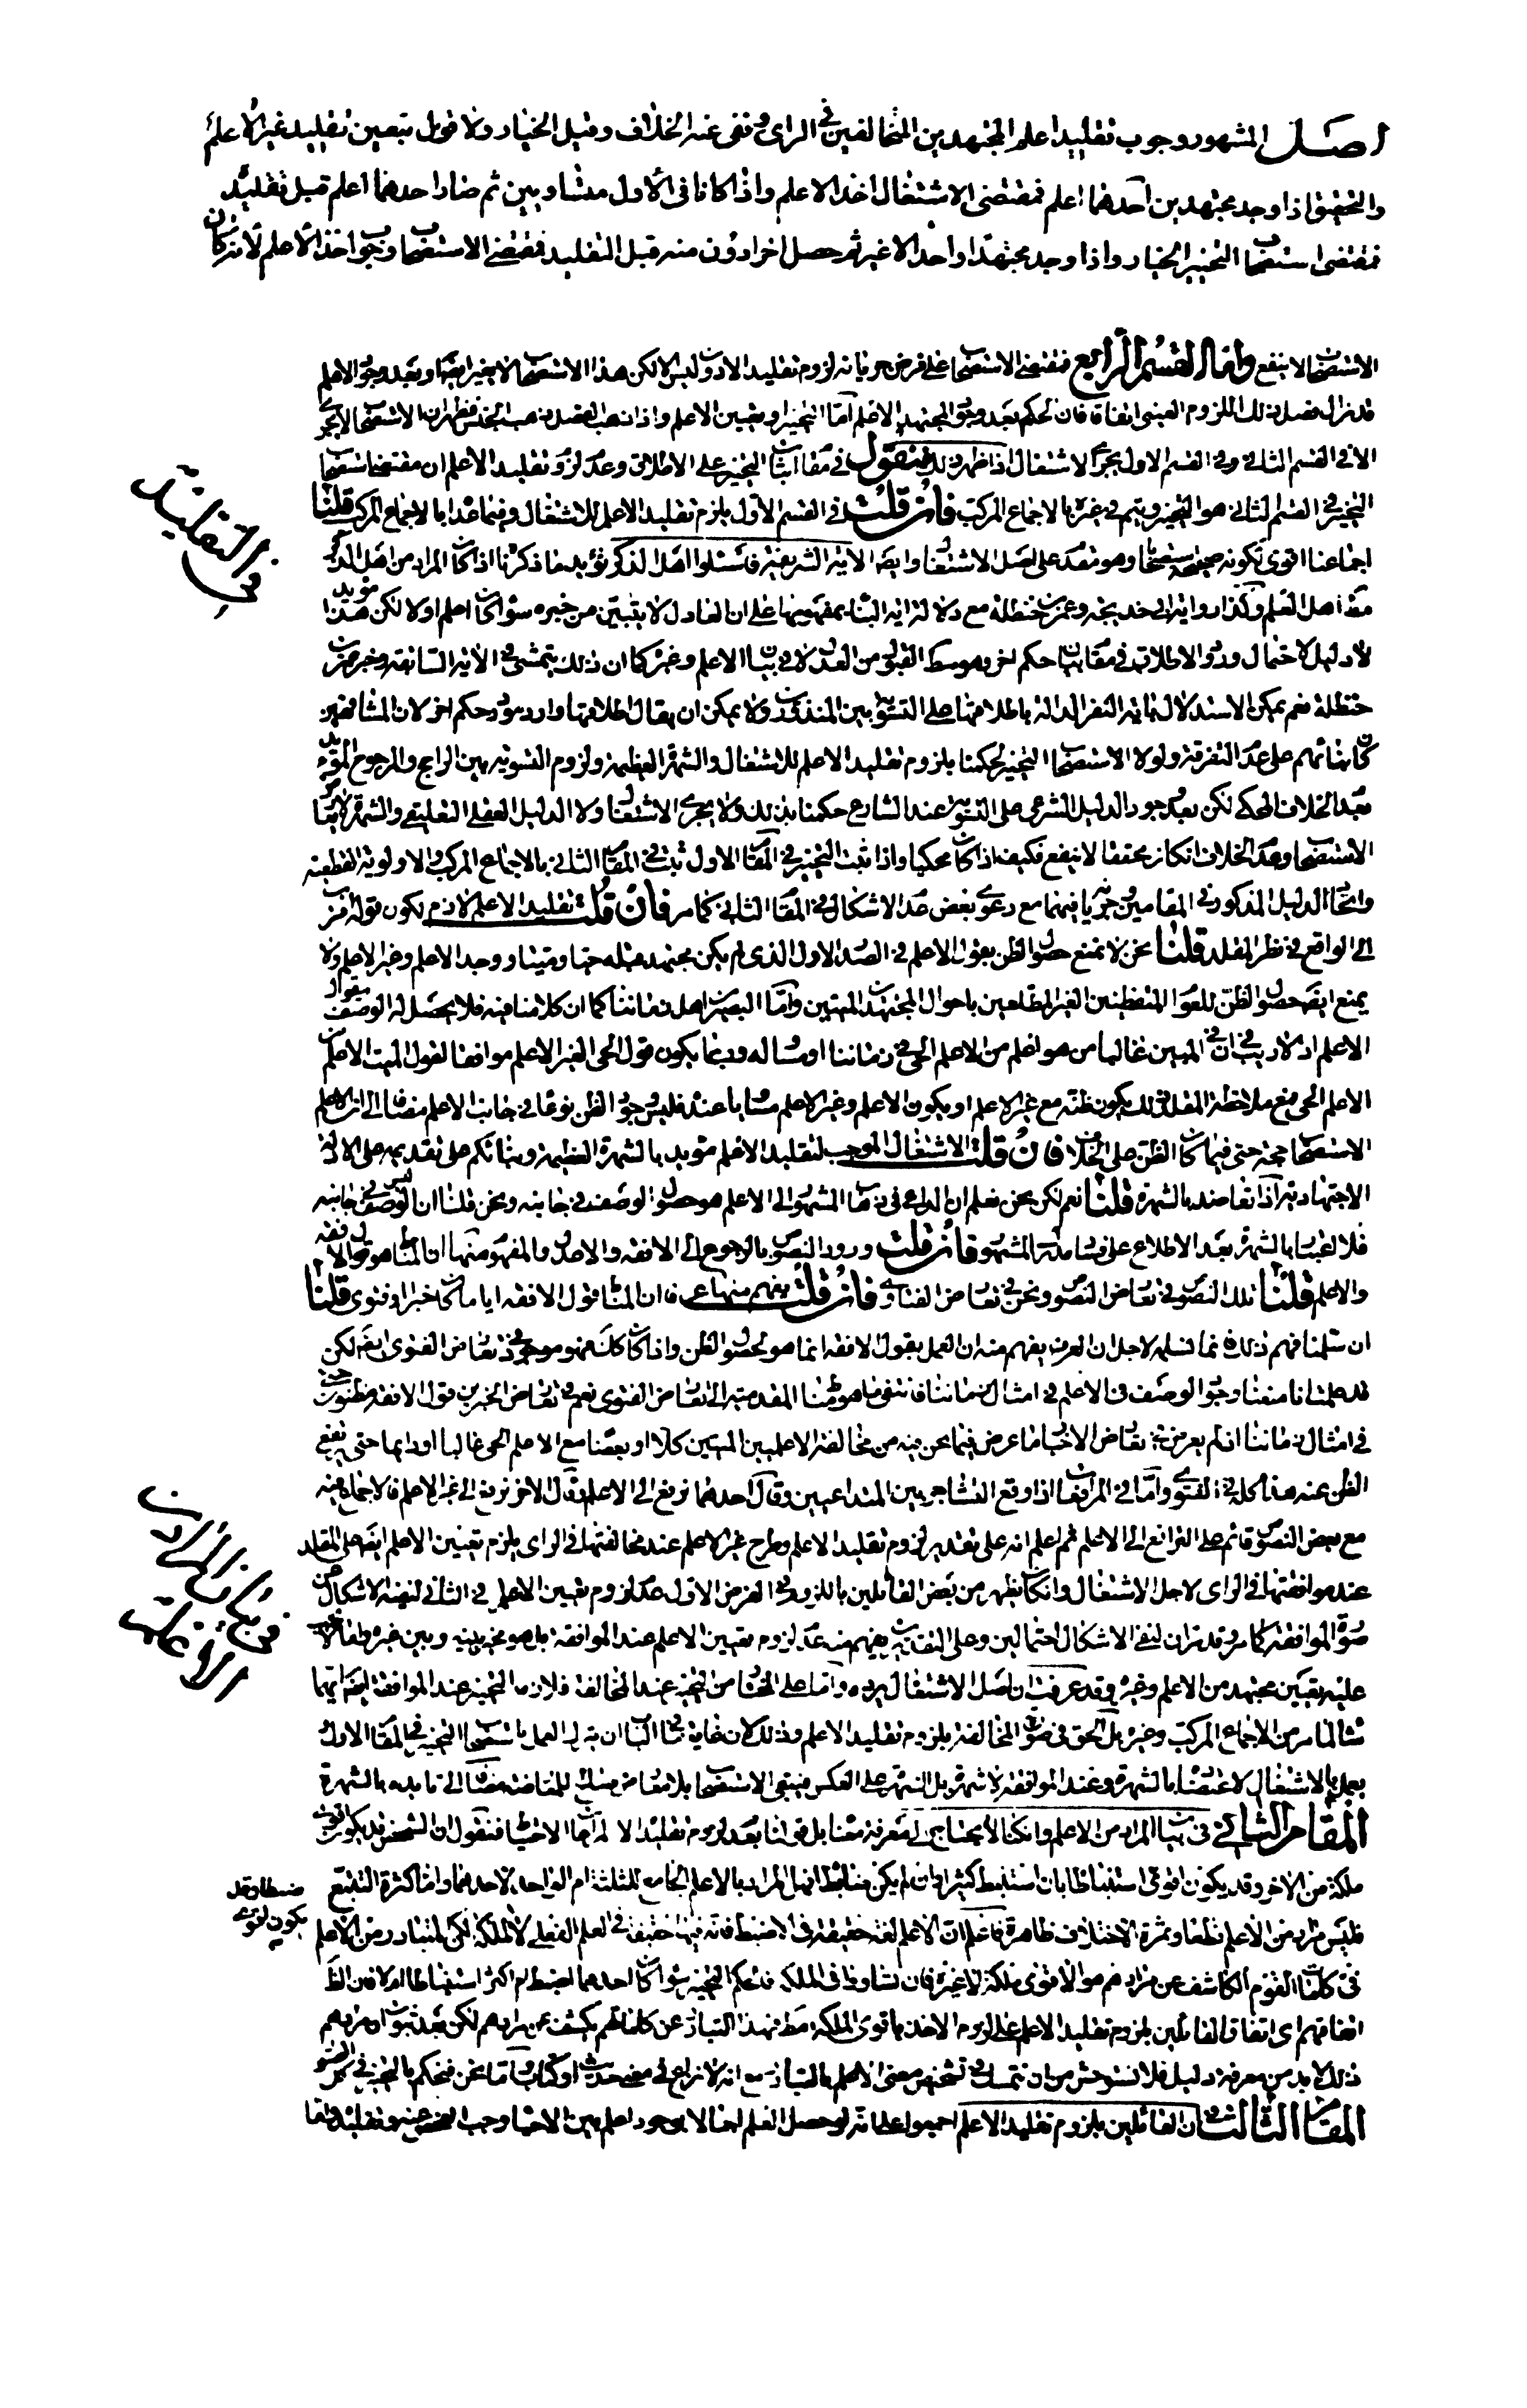 اصل المشهور وجوب تقليد اعلم المجتهدين المتخالفين في الراى ونفى عنه الخلاف وقيل الخيار ولا قول بتعيين تقليد غير الاعلم
والتحقيق اذا وجد مجتهدين احدهما اعلم فمقتضى الاشتغال اخذ الاعلم واذا كانا فى الاول متساويين ثم صار احدهما اعلم قبل تقليد
فمقتضى استصحاب التخيير الخيار واذا وجد مجتهدا واحدا لا غير ثم حصل اخر ادون منه قبل التقليد فمقتضى الاستصحاب وجوب اخذ الاعلم لانه كان
الاستصحاب لا ينفع واما القسم الرابع فمقتضى الاستصحاب على فرض جريانه لزوم تقليد الادون وليس الا لكن هذا الاستصحاب لا يجرى ايضا وبعد وجود الاعلم
قد زال فصل ذلك اللزوم العينى اتفاقا فان الحكم بعد وجود المجتهد الاعلم اما التخيير او تعيين الاعلم واذا ذهب الفصل ذهب الجنس فظهر ان الاستصحاب لا يجرى
الا فى القسم الثانى وفى القسم الاول يجرى الاشتغال اذا ظهر ذلك فنقول فى مقام اثبات التخيير على الاطلاق وعدم لزوم تقليد الاعلم ان مقتضى استصحاب
التخيير فى القسم الثانى هو التخيير ويتم فى غيره بالاجماع المركب فان قلت فى القسم الاول يلزم تقليد الاعلم للاشتغال وفيما عداه بالاجماع المركب قلنا
اجماعنا اقوى لكونه بضميمة استصحاب وهو مقدم على اصل الاشتغال وايضا الاية الشريفة فاسئلوا اهل الذكر تؤيد ما ذكرنا اذا كان المراد من اهل الذكر
مطلق اهل العلم وكذا رواية ابى خديجة وعمر بن حنظلة مع دلالة اية النبأ بمفهومها على ان العادل لا يتبين من خبره سواء كان اعلم او لا لكن هذا مؤيد
لا دليل لاحتمال ورود الاطلاق فى مقام بيان حكم اخر وهو وسط القبول من العدل لا فى بيان الاعلم وغيره كما ان ذلك يتمشى فى الاية السابقة وخبر عمر بن
حنظلة نعم يمكن الاستدلال باية النفر الدالة باطلاقها على التسوية بين المنذرين ولا يمكن ان يقال اطلاقها وارد مورد حكم اخر لان المشافهين
كان بنائهم على عدم التفرقة ولولا الاستصحاب التخيير لحكمنا بلزوم تقليد الاعلم للاشتغال والشهرة العظيمة ولزوم التسوية بين الراجح والمرجوح المؤيد
بعدم الخلاف المحكى لكن بعد وجود الدليل الشرعى على التسوية عند الشارع حكمنا بذلك ولا يجرى الاشتغال ولا الدليل العقلى التعليقى والشهرة لا تعارض
الاستصحاب وعدم الخلاف ان كان محققا لا ينفع فكيف اذا كان محكيا واذا ثبت التخيير فى المقام الاول ثبت فى المقام الثانى بالاجماع المركب والاولوية القطعية
واتحاد الدليل المذكور فى المقامين وجريانه فيهما مع دعوى بعض عدم الاشكال فى المقام الثانى كما مر فان قلت تقليد الاعلم لازم لكون قوله اقرب
الى الواقع فى نظر المقلد قلنا نحن لا نمنع حصول الظن بقول الاعلم فى الصدر الاول الذى لم يكن مجتهد قبله حيا وميتا ووجد الاعلم وغير الاعلم ولا
يمنع ايضا حصول الظن للعوام المتفطنين الغير المطلعين باحوال المجتهدين الميتين واما البصير من اهل زماننا كما ان كلامنا فيه فلا يحصل له الوصف بقول
الاعلم اذ لا ريب فى ان فى الميتين غالبا من هو اعلم من الاعلم الحى فى زماننا او مساو له وربما يكون قول الحى الغير الاعلم موافقا لقول الميت الاعلم من
الاعلم الحى فمع ملاحظة المقلد ذلك يكون ظنه مع غير الاعلم او يكون الاعلم وغير الاعلم متساويا عنده فليس وجود الظن نوعا فى جانب الاعلم مضافا الى ان
الاستصحاب حجة حتى فيما كان الظن على الخلاف فان قلت الاشتغال الموجب لتقليد الاعلم مؤيد بالشهرة العظيمة وبنائكم على تقديمه على الادلة
الاجتهادية اذا تعاضد بالشهرة قلنا نعم لكن نحن نعلم ان الداعى فى ذهاب المشهور الى الاعلم هو حصول الوصف فى جانبه ونحن قلنا ان الوصف ليس فى جانبه
فلا اعتبار بالشهرة بعد الاطلاع على فساد مدرك المشهور فان قلت ورود النصوص بالرجوع الى الافقه والاعدل والمفهوم منها ان المناط هو قول الافقه
والاعلم قلنا تلك النصوص فى تعارض النصوص ونحن فى تعارض الفتاوى فان قلت يفهم منها عرفا ان المناط قول الافقه اياما كان خبرا او فتوى قلنا
ان سلمنا فهم ذلك فانما نسلمه لاجل ان العرف يفهم منه ان العمل بقول الافقه انما هو لحصول الظن واذا كان كذلك فهو موجود فى تعارض الفتوى ايضا لكن
قد علمت انا منعنا وجود الوصف فى الاعلم فى امثال زماننا فانتفى ما هو مناط المقدمية الى تعارض الفتوى نعم فى تعارض الخبرين قول الافقه مظنون حتى
فى امثال زماننا اذ لم يعرض فى تعارض الاخبار ما عرض فيما نحن فيه من مخالفة الاعلمين الميتين كلا او بعضا مع الاعلم الحى غالبا او دائما حتى يرتفع
الظن عنه هذا كله فى الفتوى واما فى المرافعة اذا وقع التشاجر بين المتداعيين وقال احدهما نرفع الى الاعلم وقال الاخر نرفع الى غير الاعلم فالاجماع فيه
مع بعض النصوص قائم على الترافع الى الاعلم ثم اعلم انه على تقدير لزوم تقليد الاعلم وطرح غير الاعلم عند مخالفتهما فى الراى يلزم تعيين الاعلم ايضا على المقلد
عند موافقتهما فى الراى لاجل الاشتغال وان كان يظهر من بعض القائلين باللزوم فى الفرض الاول عدم لزوم تعيين الاعلم فى الثانى لنفيه الاشكال عن
صورة الموافقة كما مر وقد مر ان لنفى الاشكال احتمالين وعلى التقديرين يفهم منه عدم لزوم تعيين الاعلم عند الموافقة بل هو مخير بينه وبين غيره
عليه تعيين مجتهد من الاعلم وغيره وقد عرفت ان اصل الاشتغال يرده واما على المختار من التخيير عند المخالفة فلازمه التخيير عند الموافقة ايضا
لما مر من الاجماع المركب وغيره بل الحق فى صورة المخالفة يلزم تقليد الاعلم وذلك لان غاية ما فى الباب ان يترك العمل باستصحاب التخيير فى المقام الاول
يعمل بالاشتغال لاعتضاده بالشهرة وعند الموافقة لا شهرة بل الشهرة على العكس فيبقى الاستصحاب بلا معارض مضافا الى تأييده بالشهرة
المقام الثانى فى بيان المراد من الاعلم وان كنا لا نحتاج الى معرفة معناه بل قولنا بعدم لزوم تقليد الاعلم فنقول ان الشخص قد يكون اقوى
ملكة من الاخر وقد يكون اقوى استنباطا بان استنبط كثيرا وان لم يكن ضابطا انما المراد بالاعلم الجامع للثلثة ام الواحد لاحدهما واما كثرة التتبع
فليس مراد من الاعلم قطعا وثمرة الاختلاف ظاهرة فاعلم ان الاعلم لغة حقيقة فى الاضبط فانه حقيقة فى العلم الفعلى لا الملكة لكن المتبادر من الاعلم
فى كلمات القوم الكاشف عن مرادهم هو الاقوى ملكة لا غيره فان تساويا فى الملكة فالحكم التخيير سواء كان احدهما اضبط ام اكثر استنباطا ام لا
اتفاقهم اى اتفاق القائلين بلزوم تقليد الاعلم على لزوم الاخذ باقوى الملكة فهذا التبادر عن كلماتهم يكشف عن مرادهم لكن بعد ثبوت ان مرادهم
ذلك لا بد من معرفة دليل فلا تستوحش من ان نتمسك فى تشخيص معنى الاعلم بالتبادر مع انه لا نزاع فى معنى حديث او كتاب واما نحن فنحكم بالتخيير فى كل الصور
المقام الثالث ان القائلين بلزوم تقليد الاعلم اجمعوا على انه لو حصل العلم اجمالا بوجود اعلم بين الاحياء وجب الفحص عنه وتقليده واما
فى التقليد
فى بيان المراد من الاعلم
ضبطا وقد
يكون اقوى